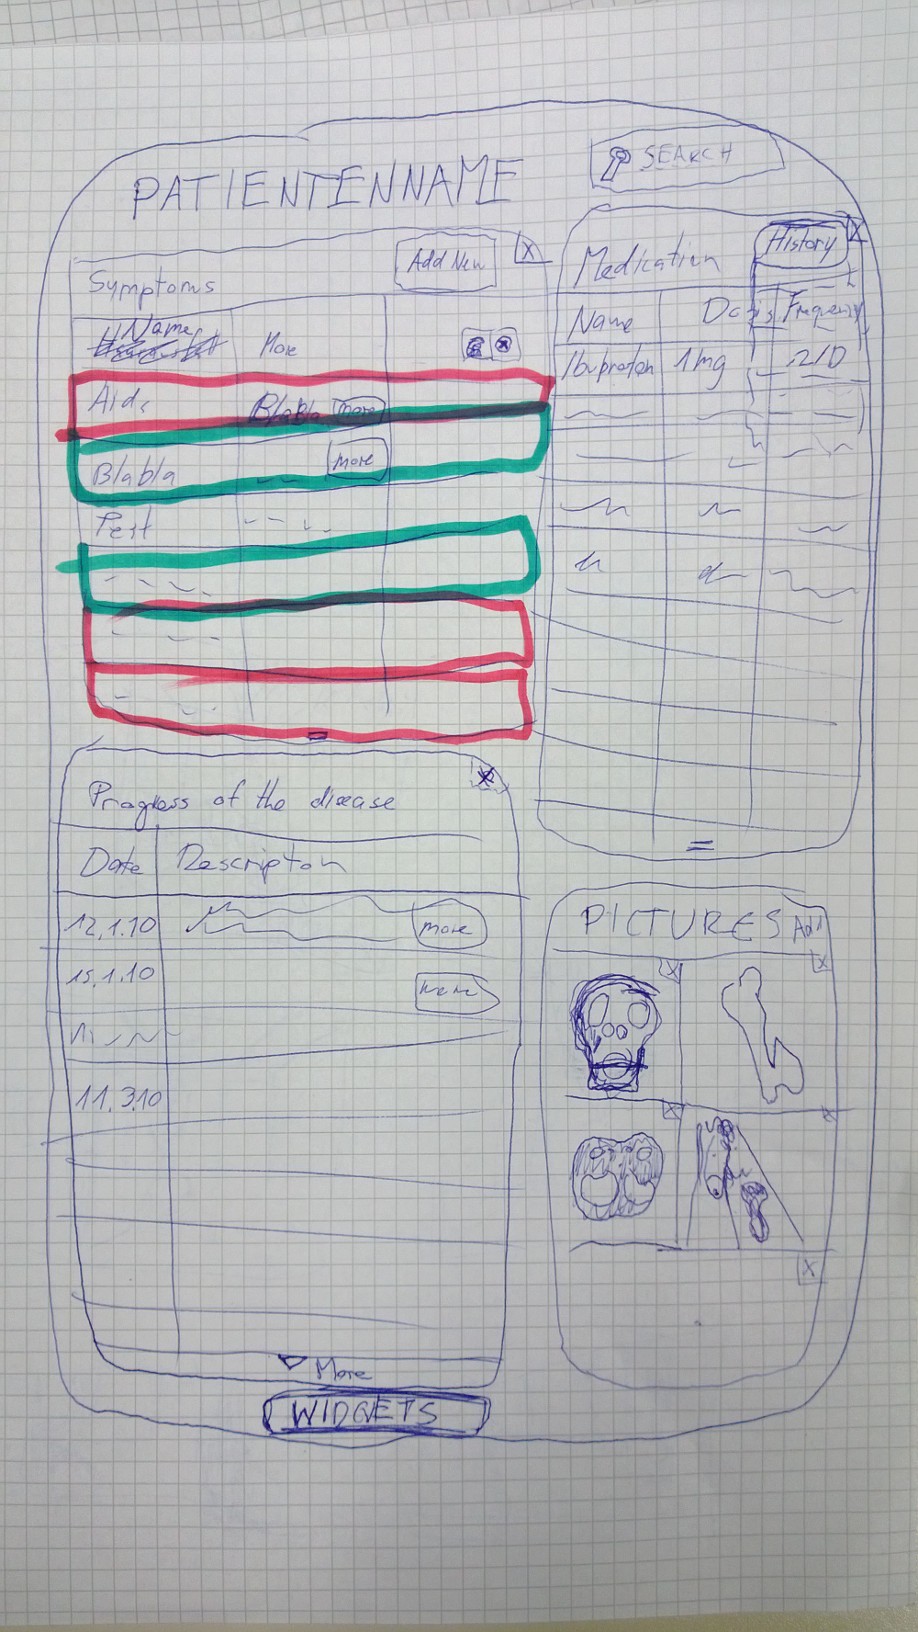 PATIENTENNAME
SEARCH
Symptoms
Add New
X
Name
More
Aids
BlaBla
more
Blabla
more
Pest
Medication
History
X
Name
Dosis
Frequenzy
Ibuprofen
1mg
2/D
Progress of the disease
X
Date
Description
12.1.10
more
15.1.10
more
11.3.10
More
WIDGETS
PICTURES
Add
X
X
X
X
X